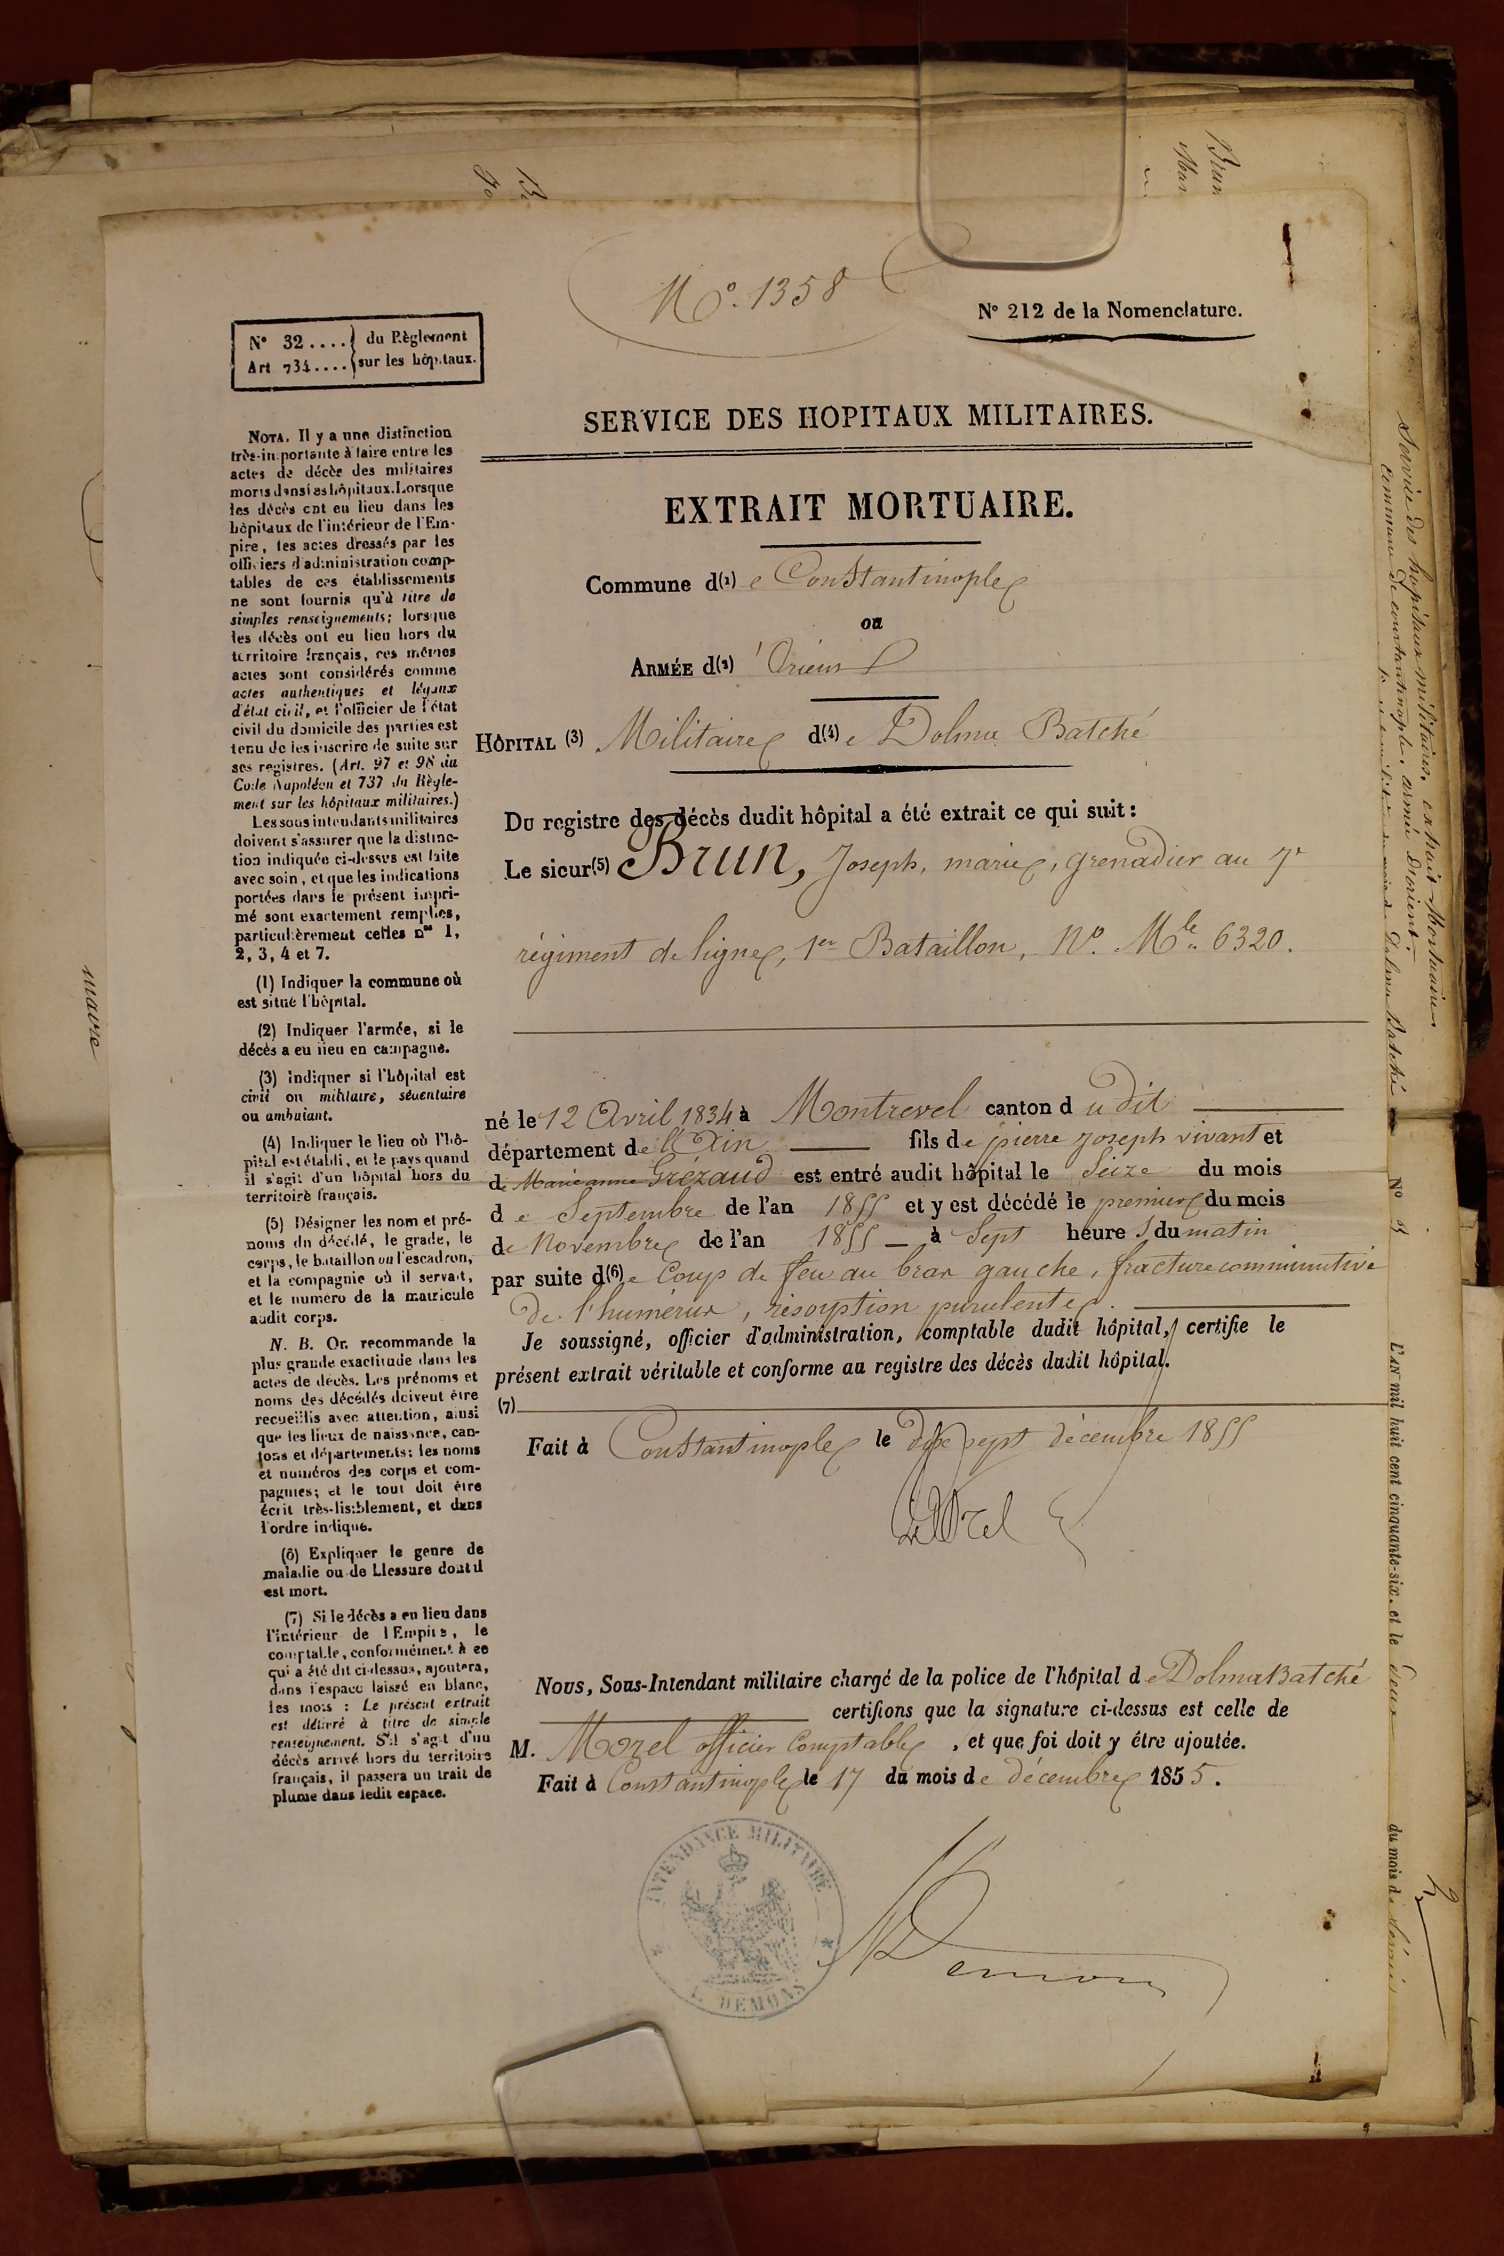 Brun
N° 1358
N° 212 de la Nomenclature.
N° 32 .... } du Règlement
Art 734 .... } sur les hôpitaux.
SERVICE DES HOPITAUX MILITAIRES.
EXTRAIT MORTUAIRE.
Commune d(1) e Constantinople
ou
ARMÉE d(2) 'Orient
HÔPITAL (3) Militaire d(4) e Dolma Batché
Du registre des décès dudit hôpital a été extrait ce qui suit :
Le sieur(5) Brun, Joseph, marie, grenadier au 7e
régiment de ligne, 1er Bataillon, N°. Mle 6320.
né le 12 Avril 1834 à Montrevel canton d udit
département de l'Ain fils de pierre Joseph vivant et
de Marie anne Grézaud est entré audit hôpital le Seize du mois
d e Septembre de l'an 1855 et y est décédé le premier du mois
de Novembre de l'an 1855 à Sept heure s du matin
par suite d(6) e Coup de feu au bras gauche, fracture comminutive
de l'humérus, résorption purulente.
Je soussigné, officier d'administration, comptable dudit hôpital, certifie le
présent extrait véritable et conforme au registre des décès dudit hôpital.
(7)
Fait à Constantinople le dix sept décembre 1855
Morel
Nous, Sous-Intendant militaire chargé de la police de l'hôpital d e Dolma Batché
certifions que la signature ci-dessus est celle de
M. Morel officier Comptable, et que foi doit y être ajoutée.
Fait à Constantinople le 17 du mois de décembre 1855.
INTENDANCE MILITAIRE
DEMONS
Demons
NOTA. Il y a une distinction
très-importante à faire entre les
actes de décès des militaires
morts dans les hôpitaux. Lorsque
les décès ont eu lieu dans les
hôpitaux de l'intérieur de l'Em-
pire, les actes dressés par les
officiers d'administration comp-
tables de ces établissements
ne sont fournis qu'à titre de
simples renseignements ; lorsque
les décès ont eu lieu hors du
territoire français, ces mêmes
actes sont considérés comme
actes authentiques et légaux
d'état civil, et l'officier de l'état
civil du domicile des parties est
tenu de les inscrire de suite sur
ses registres. (Art. 97 et 98 du
Code Napoléon et 737 du Règle-
ment sur les hôpitaux militaires.)
Les sous intendants militaires
doivent s'assurer que la distinc-
tion indiquée ci-dessus est faite
avec soin, et que les indications
portées dans le présent impri-
mé sont exactement remplies,
particulièrement celles nos 1,
2, 3, 4 et 7.
(1) Indiquer la commune où
est situé l'hôpital.
(2) Indiquer l'armée, si le
décès a eu lieu en campagne.
(3) Indiquer si l'hôpital est
civil ou militaire, sédentaire
ou ambulant.
(4) Indiquer le lieu où l'hô-
pital est établi, et le pays quand
il s'agit d'un hôpital hors du
territoire français.
(5) Désigner les nom et pré-
noms du décédé, le grade, le
corps, le bataillon ou l'escadron,
et la compagnie où il servait,
et le numéro de la matricule
audit corps.
N. B. On recommande la
plus grande exactitude dans les
actes de décès. Les prénoms et
noms des décédés doivent être
recueillis avec attention, ainsi
que les lieux de naissance, can-
tons et départements ; les noms
et numéros des corps et com-
pagnies ; et le tout doit être
écrit très-lisiblement, et dans
l'ordre indiqué.
(6) Expliquer le genre de
maladie ou de blessure dont il
est mort.
(7) Si le décès a eu lieu dans
l'intérieur de l'Empire, le
comptable, conformément à ce
qui a été dit ci-dessus, ajoutera,
dans l'espace laissé en blanc,
les mots : Le présent extrait
est délivré à titre de simple
renseignement. S'il s'agit d'un
décès arrivé hors du territoire
français, il passera un trait de
plume dans ledit espace.
Service des hopitaux militaires, extrait Mortuaire,
commune de constantinople, armée D'orient,
N° 51
L'AN mil huit cent cinquante-six, et le deux du mois de